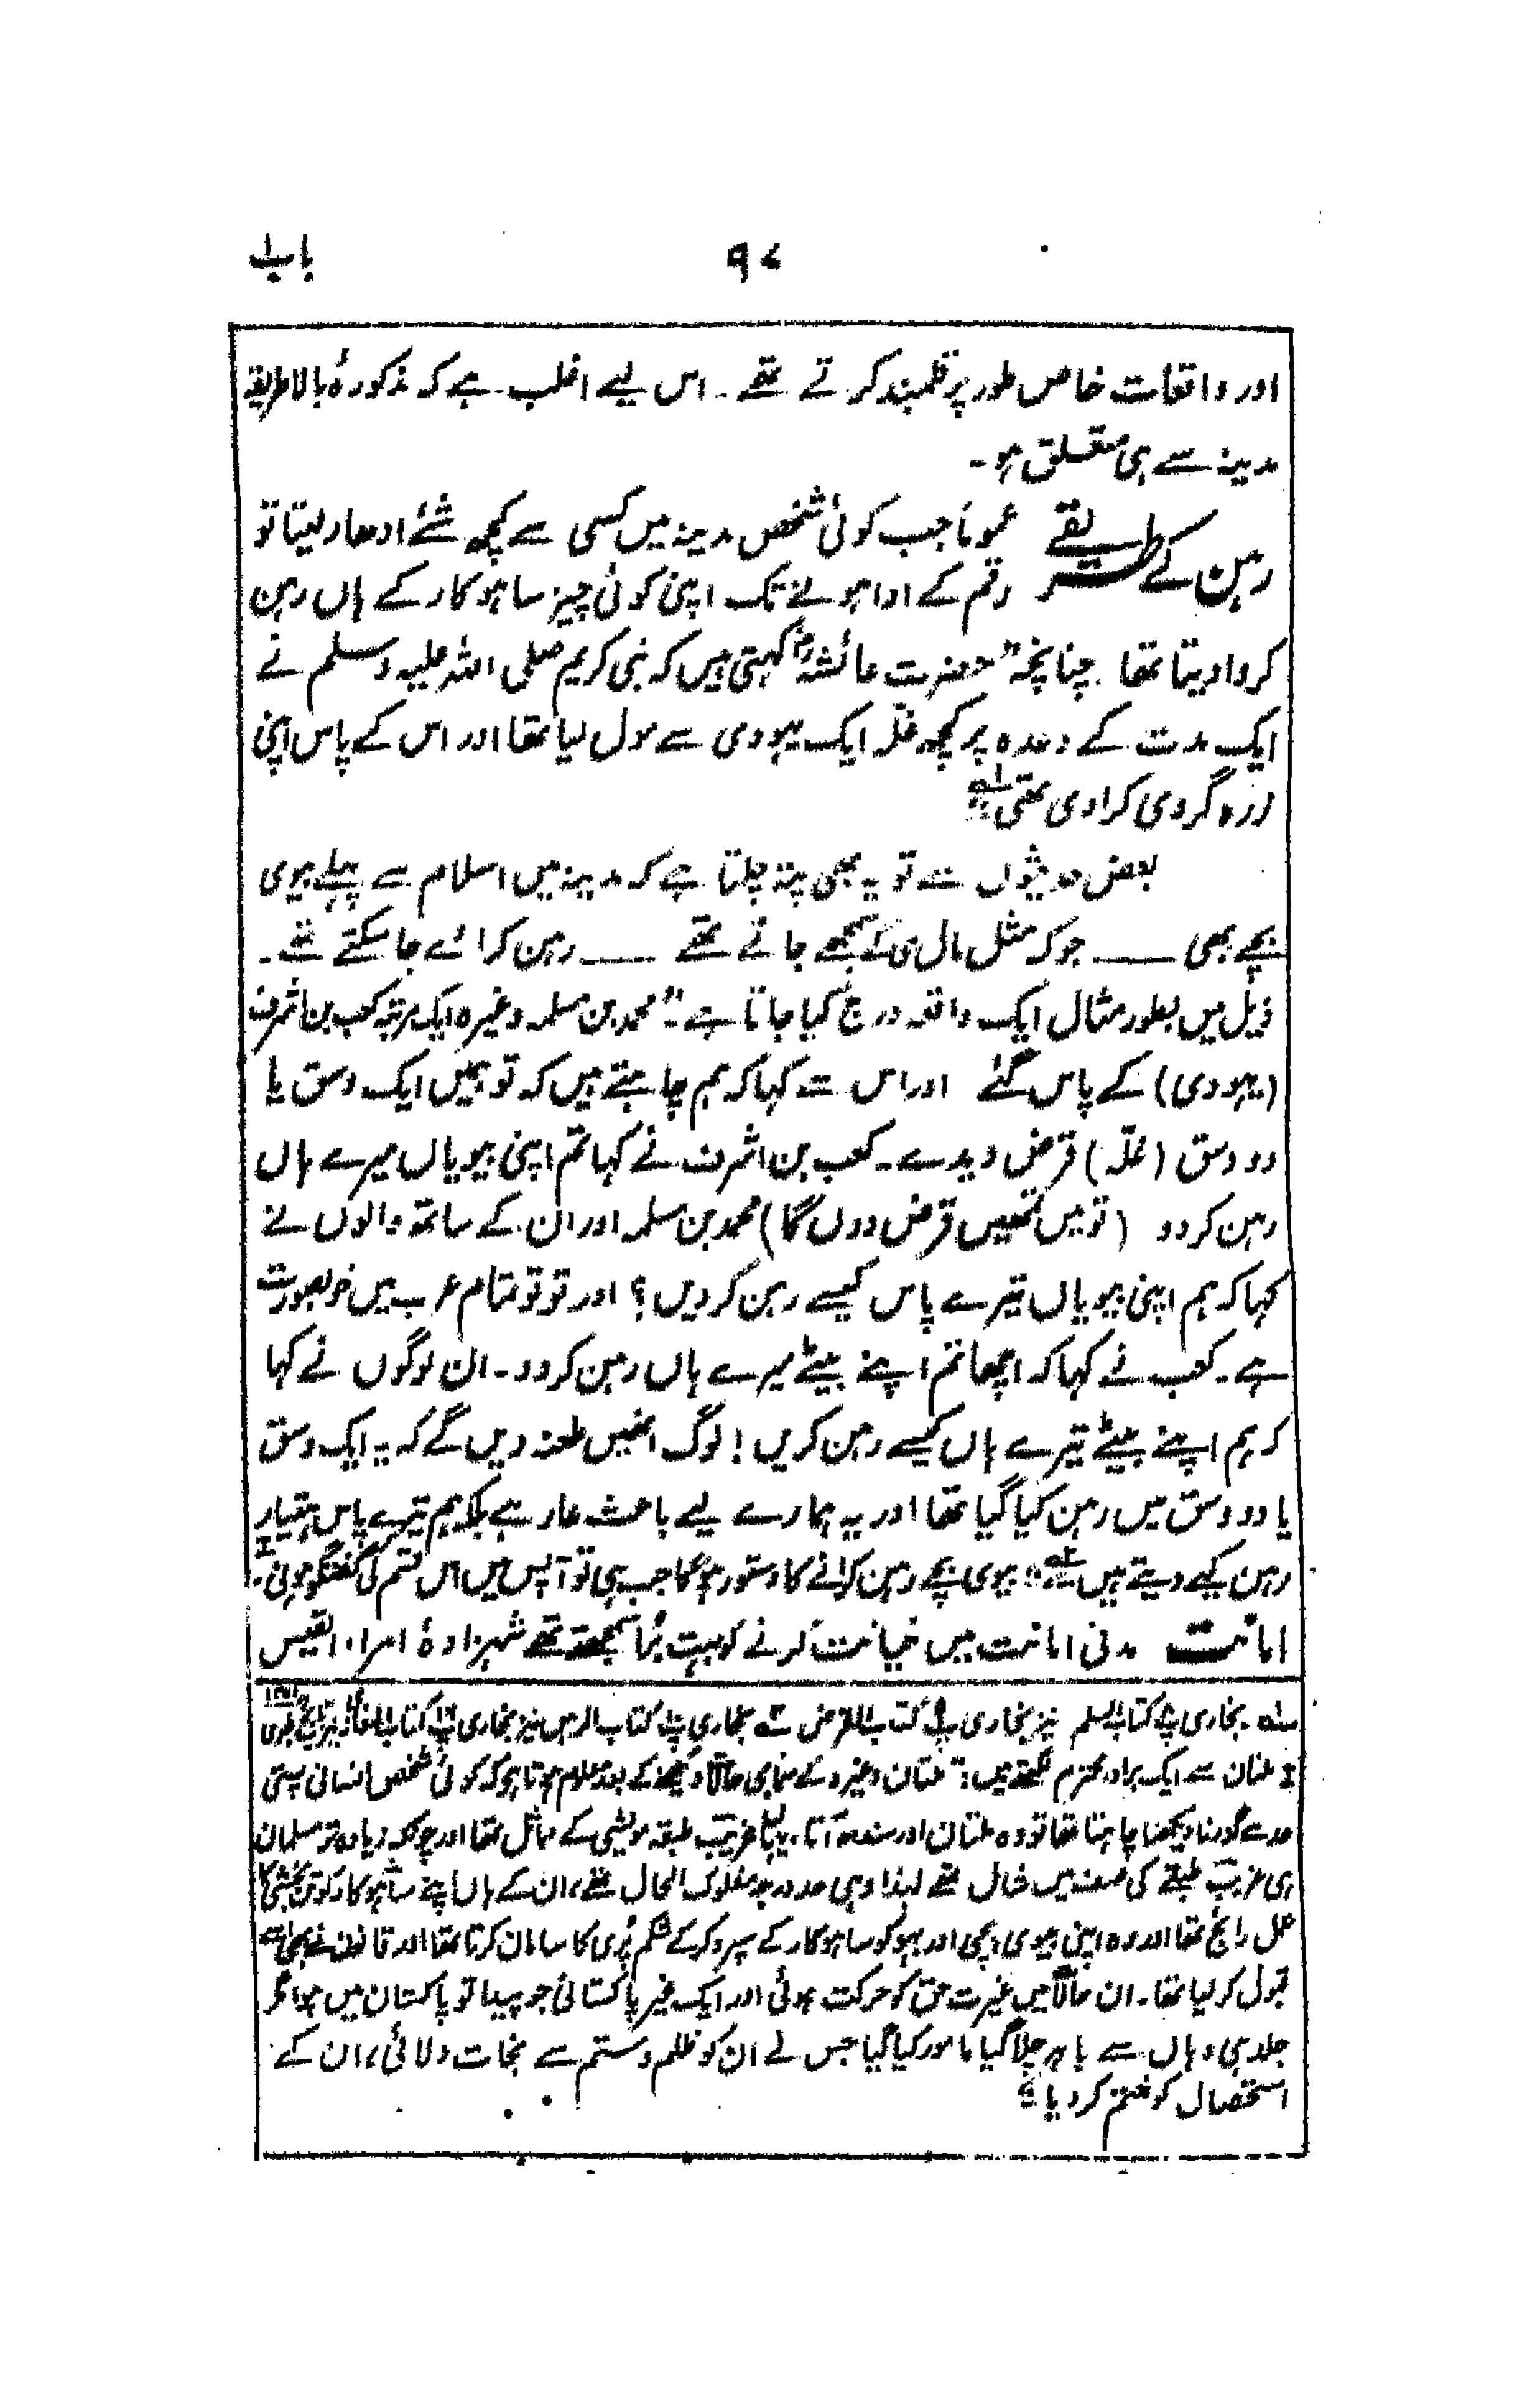 باب ۱
۹۷
اور واقعات خاص طور پر قلمبند کرتے تھے۔ اس لیے اغلب ہے کہ مذکورۂ بالا طریقہ
مدینہ سے ہی متعلق ہو۔
رہن کے طریقے عموماً جب کوئی شخص مدینہ میں کسی سے کچھ شئے ادھار لیتا تو
رقم کے ادا ہونے تک اپنی کوئی چیز ساہوکار کے ہاں رہن
کروا دیتا تھا۔ چنانچہ "حضرت عائشہؓ کہتی ہیں کہ نبی کریم صلی اللہ علیہ وسلم نے
ایک مدت کے وعدہ پر کچھ غلّہ ایک یہودی سے مول لیا تھا اور اس کے پاس اپنی
زرہ گروی کرا دی تھی" ۱؎
بعض حدیثوں سے تو یہ بھی پتہ چلتا ہے کہ مدینہ میں اسلام سے پہلے بیوی
بچے بھی —— جو کہ مثل مال ہی کے سمجھے جاتے تھے —— رہن کرائے جا سکتے تھے۔
ذیل میں بطور مثال ایک واقعہ درج کیا جاتا ہے۔ "محمد بن مسلمہ وغیرہ ایک مرتبہ کعب بن اشرف
(یہودی) کے پاس گئے اور اس سے کہا کہ ہم چاہتے ہیں کہ تو ہمیں ایک وسق یا
دو وسق (غلّہ) قرض دیدے۔ کعب بن اشرف نے کہا تم اپنی بیویاں میرے ہاں
رہن کر دو (تو میں تمھیں قرض دوں گا) محمد بن مسلمہ اور ان کے ساتھ والوں نے
کہا کہ ہم اپنی بیویاں تیرے پاس کیسے رہن کر دیں؟ اور تو تو تمام عرب میں خوبصورت
ہے۔ کعب نے کہا کہ اچھا تم اپنے بیٹے میرے ہاں رہن کر دو۔ ان لوگوں نے کہا
کہ ہم اپنے بیٹے تیرے ہاں کیسے رہن کریں! لوگ انھیں طعنہ دیں گے کہ یہ ایک وسق
یا دو وسق میں رہن کیا گیا تھا اور یہ ہمارے لیے باعث عار ہے بلکہ ہم تیرے پاس ہتیار
رہن کیے دیتے ہیں" ۲؎ بیوی بچے رہن کرانے کا دستور ہوگا جب ہی تو آپس میں اس قسم کی گفتگو ہوئی۔ I
امانت مدنی امانت میں خیانت کرنے کو بہت بُرا سمجھتے تھے شہزادۂ امراء القیس
۱؎ بخاری پ کتاب السلم نیز بخاری پ کتاب القرض ۲؎ بخاری پ کتاب الرہن نیز بخاری پ کتاب المغازی نیز تاریخ طبری
I ملتان سے ایک برادر محترم لکھتے ہیں: "ملتان وغیرہ کے سماجی حالات دیکھنے کے بعد معلوم ہوتا ہے کہ کوئی شخص انسانی پستی
حد سے گورنا دیکھنا چاہتا تھا تو وہ ملتان اور سندھ آتا، یہاں غریب طبقہ مویشی کے مماثل تھا اور چونکہ زیادہ تر مسلمان
ہی غریب طبقے کی صف میں شامل تھے لہذا وہی حد درجہ مفلوک الحال تھے، ان کے ہاں اپنے ساہوکار کو تن بخشی کا
عمل رائج تھا اور وہ اپنی بیوی، بچی اور بہو کو ساہوکار کے سپرد کر کے شکم پُری کا سامان کرتا تھا اور قانون نے بھی اسے
قبول کر لیا تھا۔ ان حالات میں غیرت حق کو حرکت ہوئی اور ایک غیر پاکستانی جو پیدا تو پاکستان میں ہوا مگر
جلد ہی وہاں سے باہر چلا گیا مامور کیا گیا جس نے ان کو ظلم و ستم سے نجات دلائی، ان کے
استحصال کو ختم کر دیا"